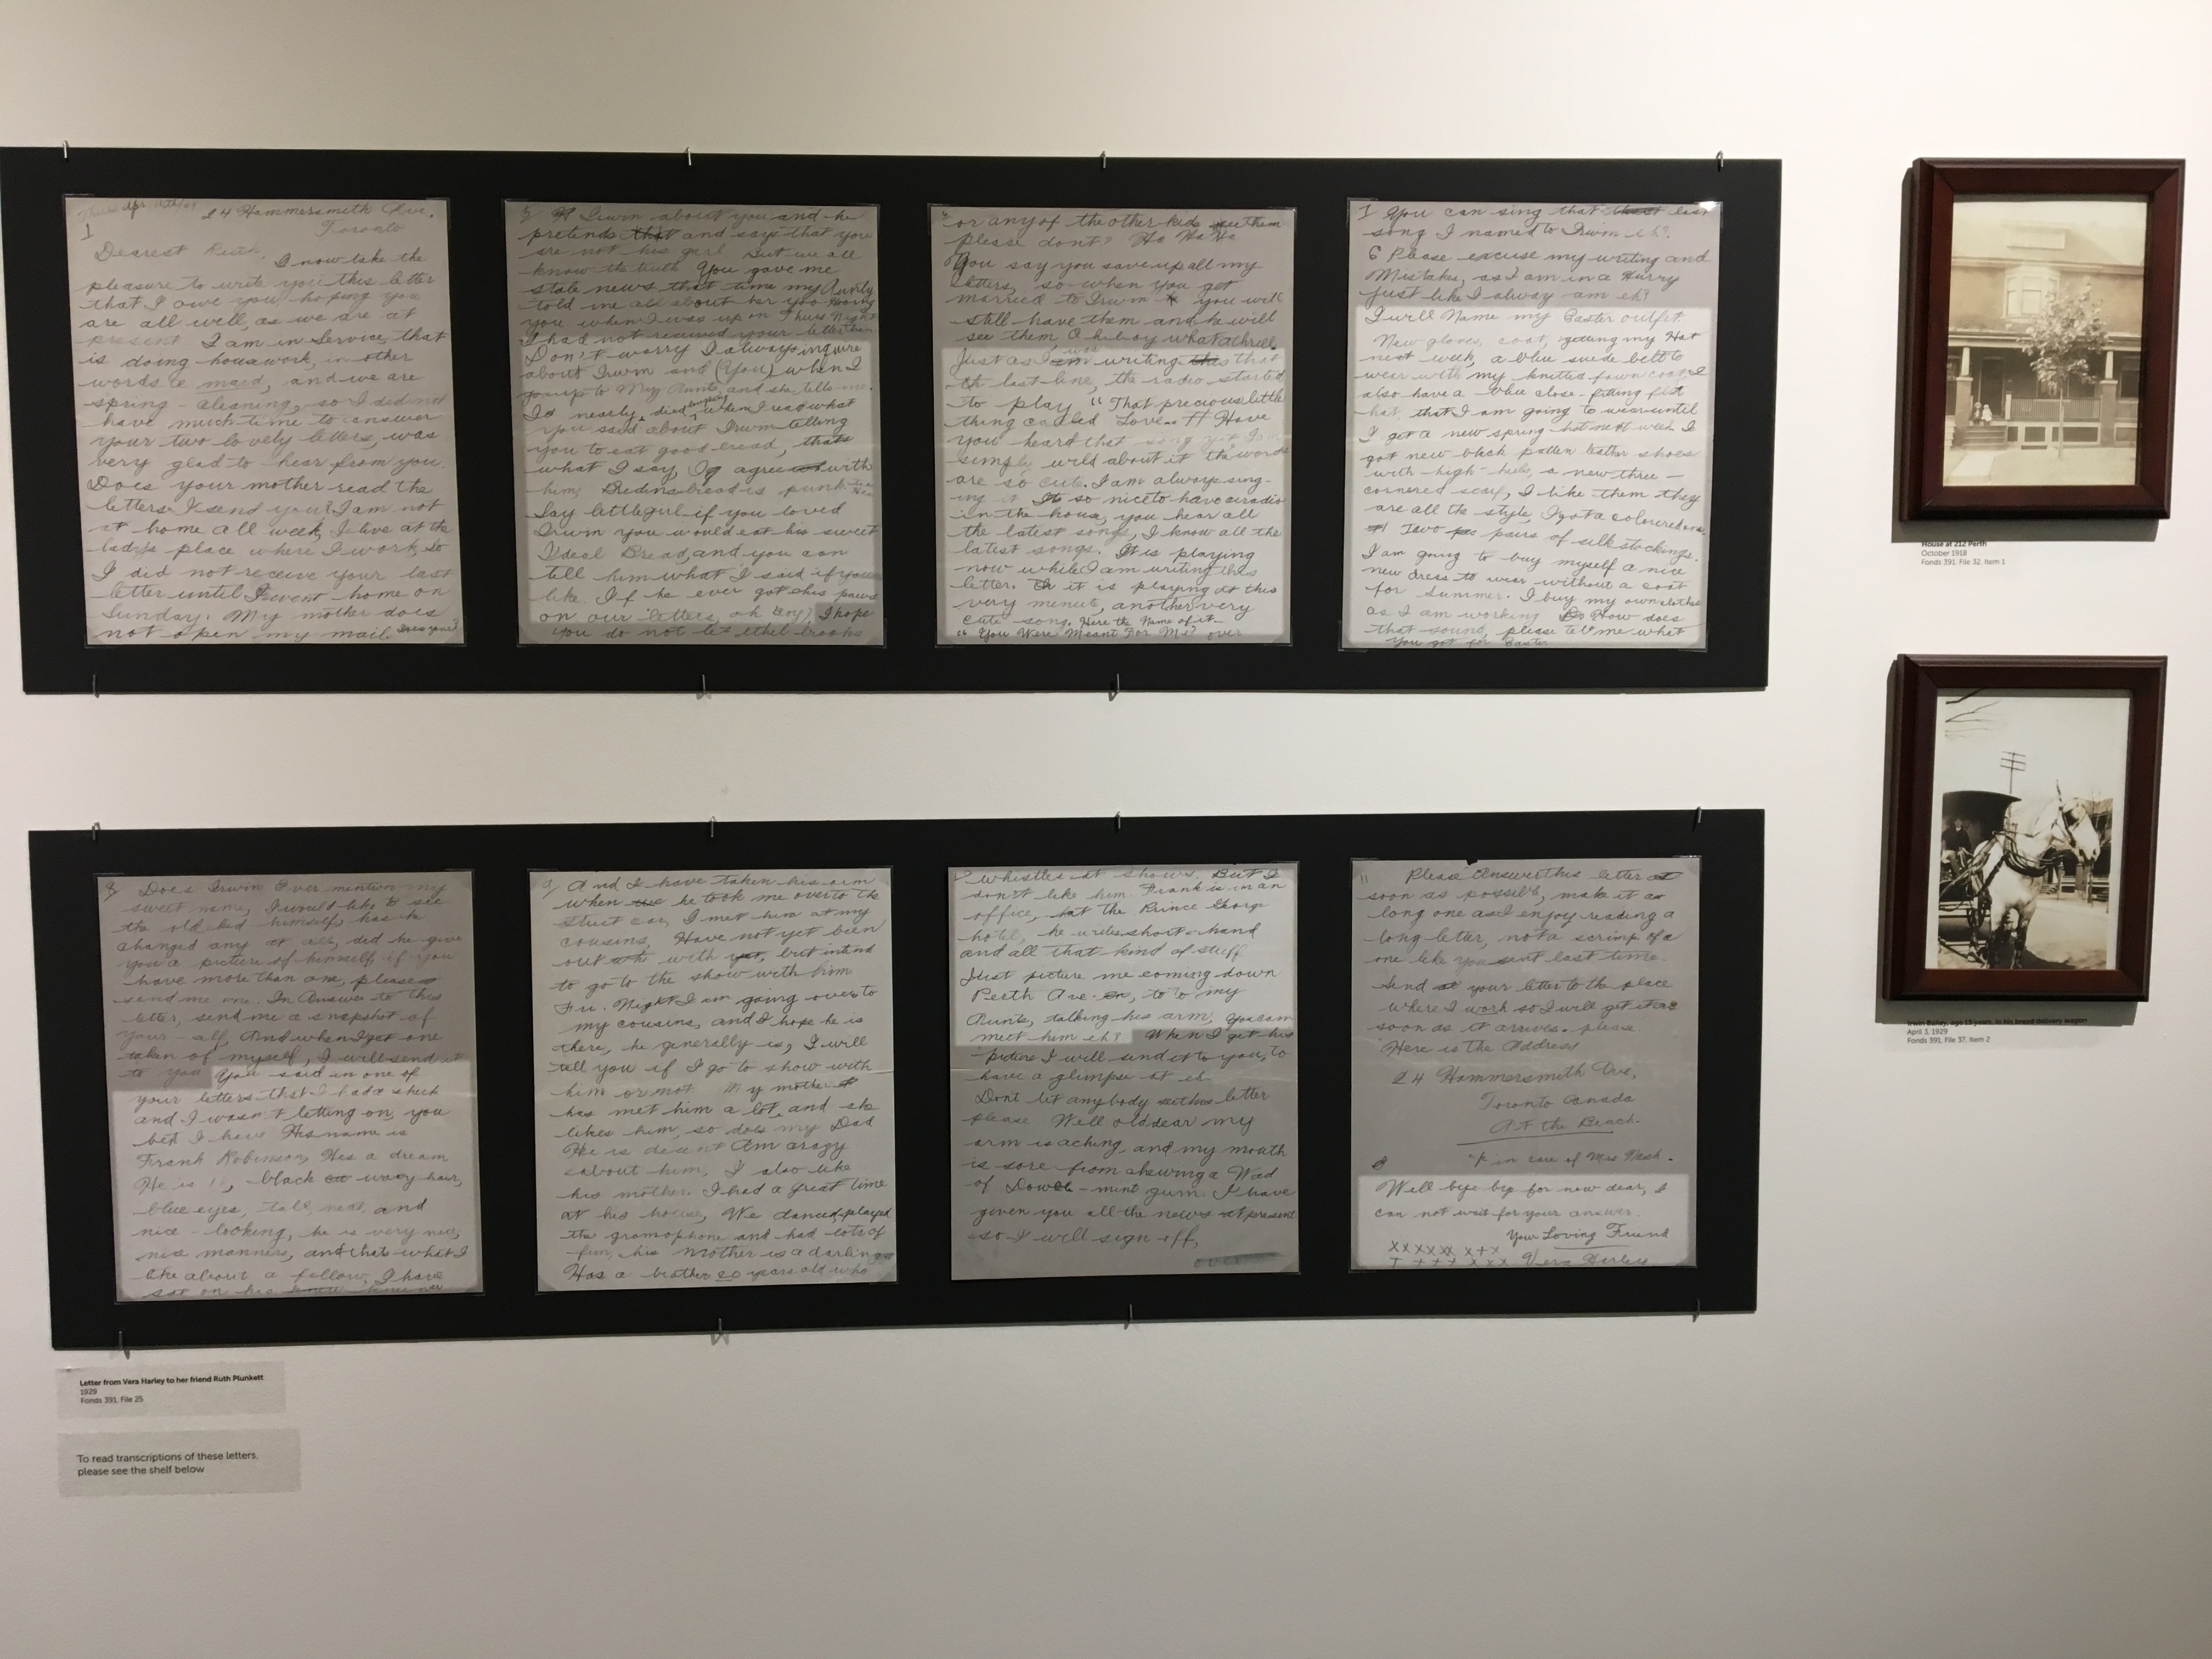 24 Hammersmith Ave.
Toronto
1
Dearest Ruth,
I now take the
pleasure to write you this letter
that I owe you hoping you
are all well, as we are at
present I am in Service, that
is doing housework, in other
words a maid, and we are
spring-cleaning, so I did not
have much time to answer
your two lovely letters, was
very glad to hear from you.
Does your mother read the
letters I send you? I am not
at home all week, I live at the
lady's place where I work, so
I did not receive your last
letter until I went home on
Sunday. My mother does
not open my mail. Does yours?
5 Irwin about you and he
pretends that and says that you
are not his girl But we all
know the truth You gave me
stale news that time my Aunty
told me all about her
you when I was up on Thurs Night
I had not received your letter then
Don't worry I always inquire
about Irwin and (You) when I
go up to My Aunts, and she tells me.
I nearly died laughing when I read what
you said about Irwin telling
you to eat good bread, thats
what I say, I agree with
him, bread is punk
Say little girl if you loved
Irwin you would eat his sweet
Ideal Bread, and you can
tell him what I said if you
like. If he ever got his paws
on our letters, oh boy, I hope
you do not let Ethel Brooks
or any of the other kids see them
please dont? Ha Ha Ha
You say you save up all my
letters, so when you get
married to Irwin you will
still have them and he will
see them, O hi boy what a thrill.
Just as I was writing this that
the last line, the radio started
to play "That precious little
thing called Love" Have
you heard that song yet I am
simply wild about it the words
are so cute. I am always sing-
ing it Its so nice to have a radio
in the house, you hear all
the latest songs, I know all the
latest songs. It is playing
now while I am writing this
letter. Oh it is playing at this
very minute, another very
cute song. Here the Name of it—
"You Were Meant For Me" over
7 You can sing that that last
song I named to Irwin eh?
Please excuse my writing and
Mistakes, as I am in a Hurry
just like I alway am eh?
I will Name my Easter outfit
New gloves, coat, getting my Hat
next week, a blue suede belt to
wear with my knitted fawn coat, I
also have a blue close-fitting felt
hat, that I am going to wear until
I get a new spring hat next week I
got new black patten leather shoes
with high-heels, a new three-
cornered scarf, I like them they
are all the style, I got a coloured one
Two pairs of silk stockings.
I am going to buy myself a nice
new dress to wear without a coat
for summer. I buy my own clothes
as I am working How does
that sound, please tell me what
You got for Easter
8 Does Irwin Ever mention my
sweet name, I would like to see
the old kid himself, has he
changed any at all, did he give
you a picture of himself, if you
have more than one, please
send me one. In Answer to this
letter, send me a snapshot of
your-self, And when I get one
taken of myself, I will send it
to you You said in one of
your letters that I had a sheik
and I wasn't letting on, you
bet I have His name is
Frank Robinson, Hes a dream
He is black wavy hair,
blue eyes, tall, neat, and
nice-looking, he is very nice,
nice manners, and thats what I
like about a fellow, I have
sat on his
9 And I have taken his arm
when he took me over to the
Street car, I met him at my
cousins, Have not yet been
out with yet, but intend
to go to the show with him
Fri. Night I am going over to
my cousins, and I hope he is
there, he generally is, I will
tell you if I go to show with
him or not My mother
has met him a lot, and she
likes him, so does my Dad
He is decent Am crazy
about him, I also like
his mother. I had a great time
at his house, We danced, played
the gramophone and had lots of
fun, his Mother is a darling
Has a brother 20 years old who
whistles at shows. But I
don't like him. Frank is in an
office, at the Prince George
hotel, he writes short-hand
and all that kind of stuff
Just picture me coming down
Perth Ave to my
Aunts, talking his arm, You can
meet him eh? When I get his
picture I will send it to you, to
have a glimpse at eh.
Dont let anybody see this letter
please Well old dear my
arm is aching, and my mouth
is sore from chewing a Wad
of mint gum. I have
given you all the news at present
so I will sign off,
over
11 Please Answer this letter as
soon as possible, make it as
long one as I enjoy reading a
long letter, not a scrimp of a
one like you sent last time.
Send your letter to the place
where I work so I will get it as
soon as it arrives. please
Here is the Address
24 Hammersmith Ave,
Toronto Canada
At the Beach.
in care of Mrs Nash.
Well bye bye for now dear, I
can not wait for your answer.
Your Loving Friend
Vera Harley
House at 212 Perth
October 1918
Fonds 391, File 32, Item 1
Irwin Bailey, age 15 years, in his bread delivery wagon
April 3, 1929
Fonds 391, File 37, Item 2
Letter from Vera Harley to her friend Ruth Plunkett
1929
Fonds 391, File 25
To read transcriptions of these letters,
please see the shelf below